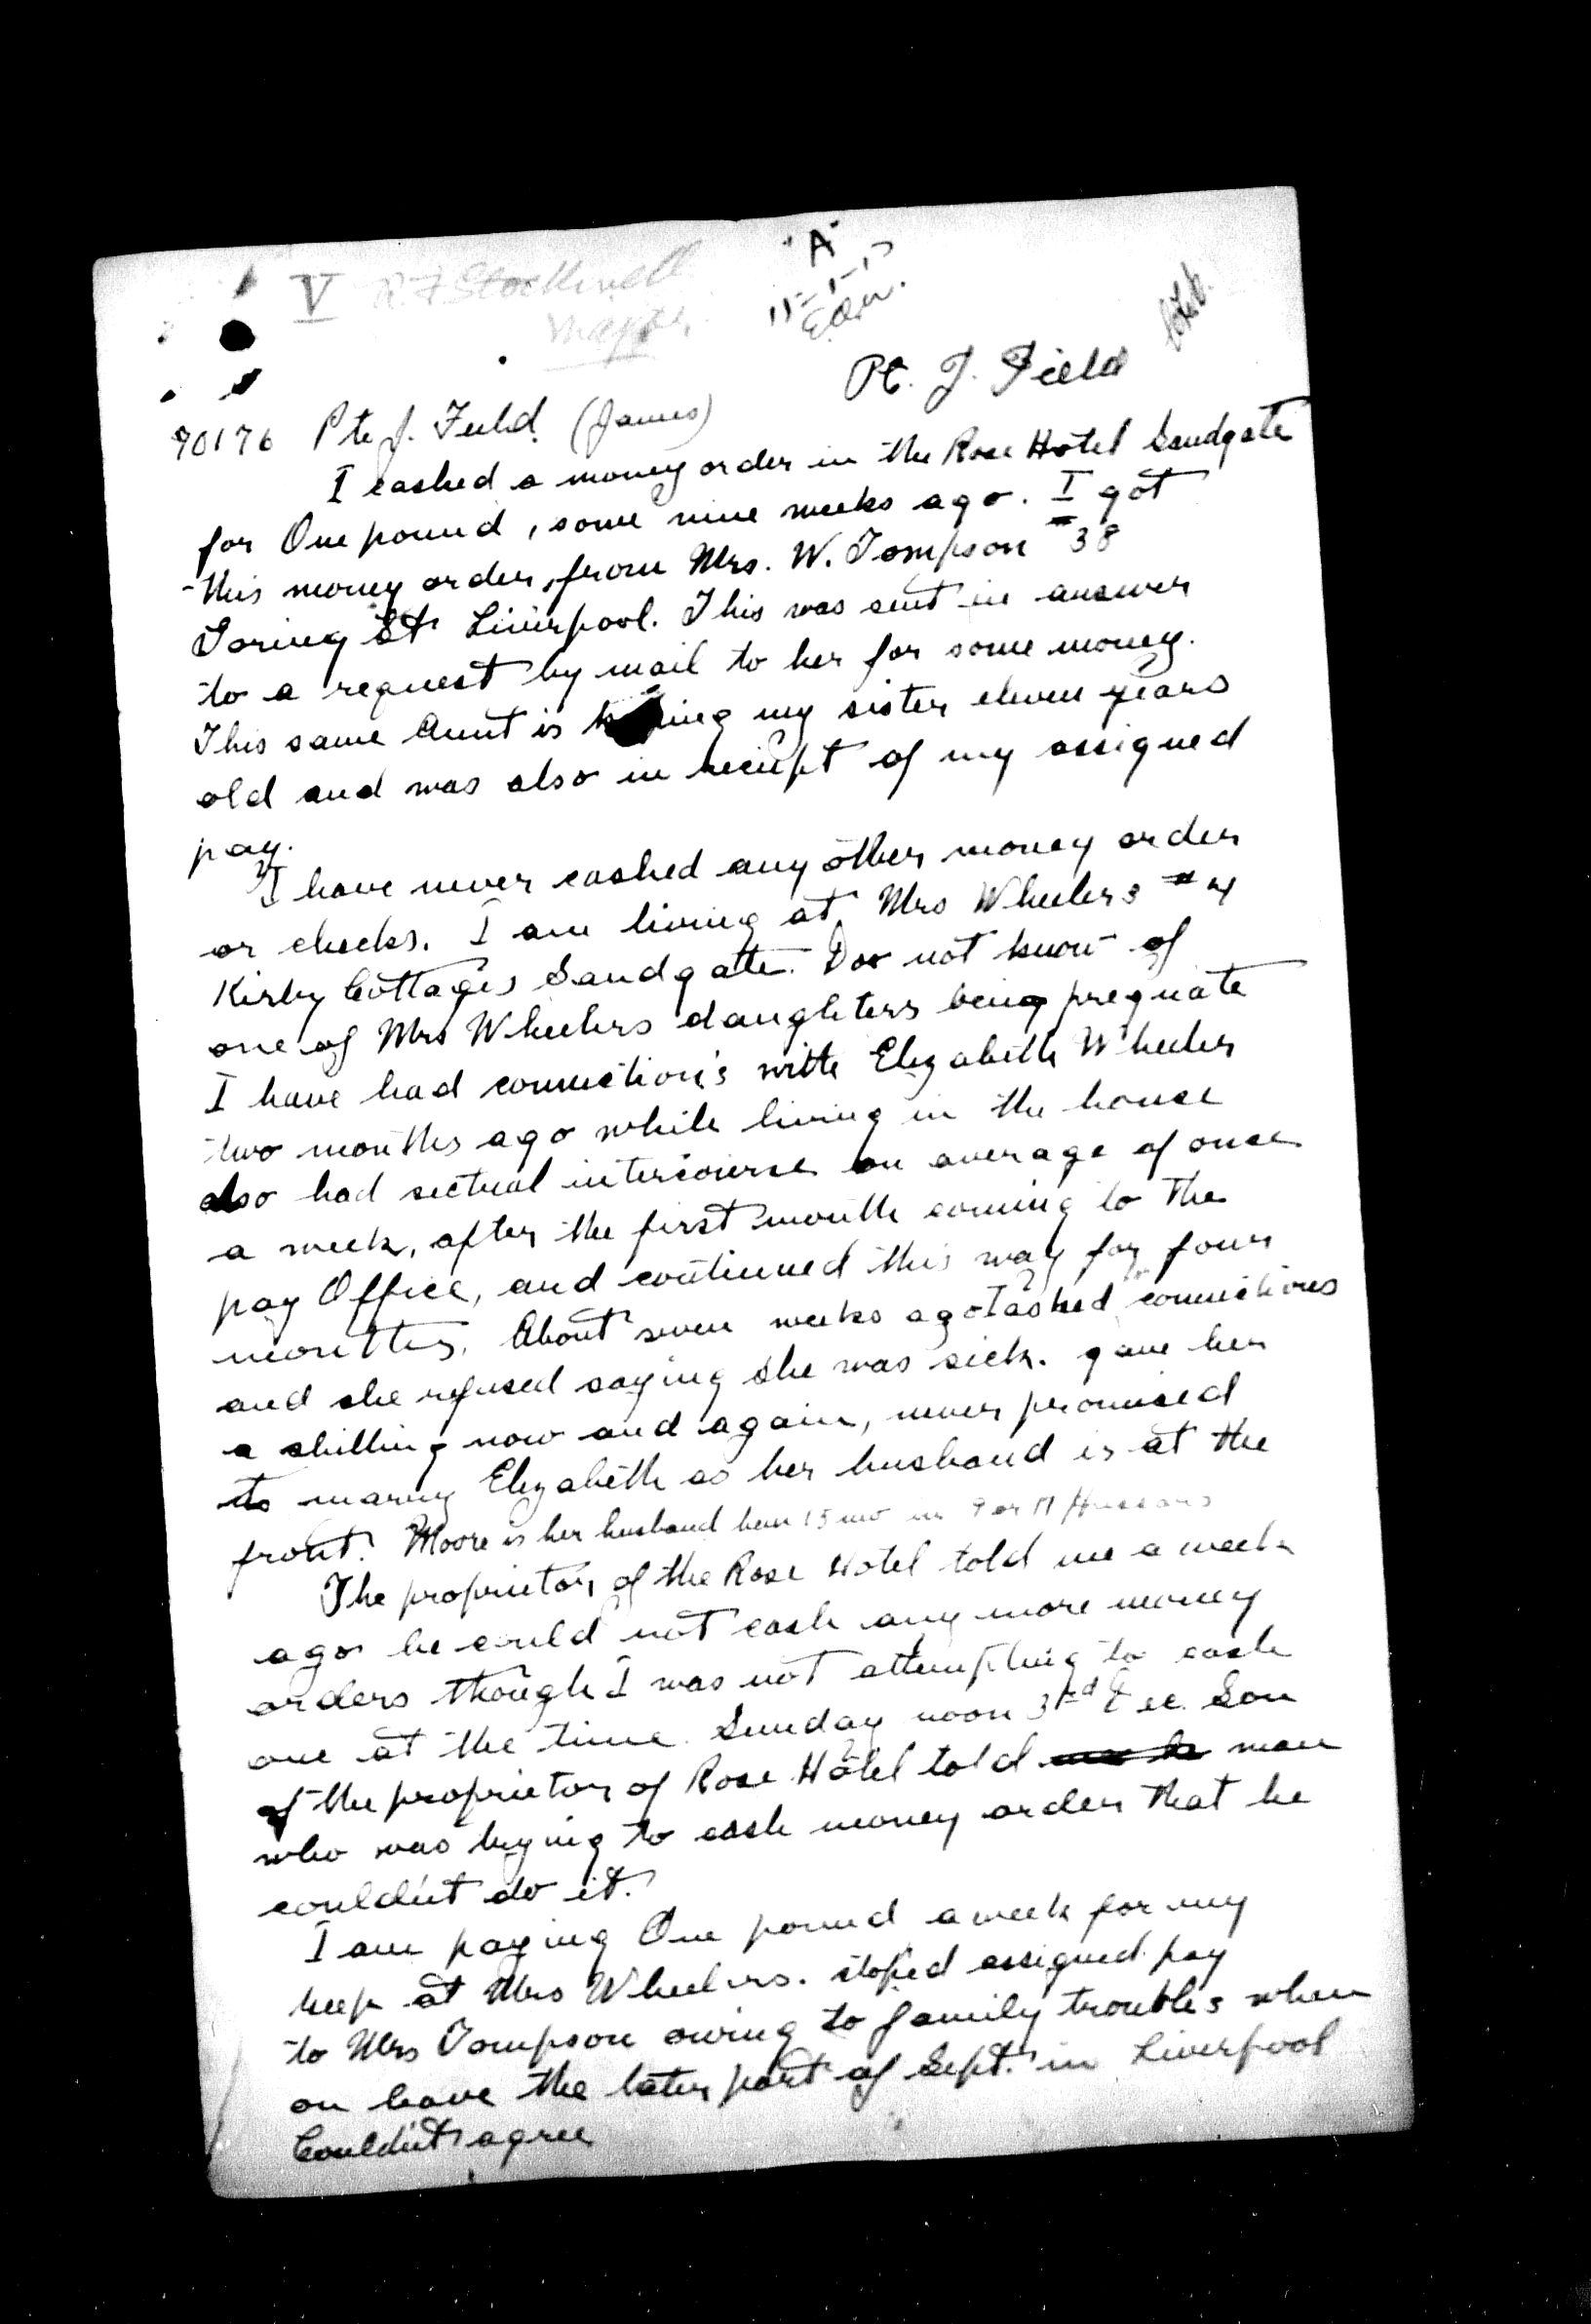 "A"
V R F Stockwell
11-1-17
Major
Pt. J. Field
90176 Pte J. Feild. (James)
I cashed a money order in the Rose Hotel Sandgate
for One pound, some nine weeks ago. I got
this money order, from Mrs. W. Tompson #38
Goring St Liverpool. This was sent in answer
to a request by mail to her for some money.
This same Aunt is my sister eleven years
old and was also in reciept of my assigned
pay.
I have never cashed any other money order
or checks. I am living at Mrs Wheelers #4
Kirby Cottages Sandgatte. Do not know of
one of Mrs Wheelers daughters being pregnate
I have had connections with Elizabeth Wheeler
two months ago while living in the house
also had sectual intercourse on average of once
a week, after the first month coming to the
pay Office, and continued this way for four
months. About seven weeks ago I asked connections
and she refused saying she was sick. gave her
a shilling now and again, never promised
to marry Elizabeth as her husband is at the
front. Moore is her husband been 15 mo in 9 or 11 Hussars
The proprietor of the Rose Hotel told me a week
ago he could not cash any more money
orders though I was not attempting to cash
one at the time. Sunday noon 31st Dec. Son
of the proprietor of Rose Hotel told man
who was trying to cash money order that he
couldn't do it.
I am paying One pound a week for my
keep at Mrs Wheelers. stoped assigned pay
to Mrs Tompson owing to family troubles when
on leave the later part of Sept. in Liverpool
Couldn't agree